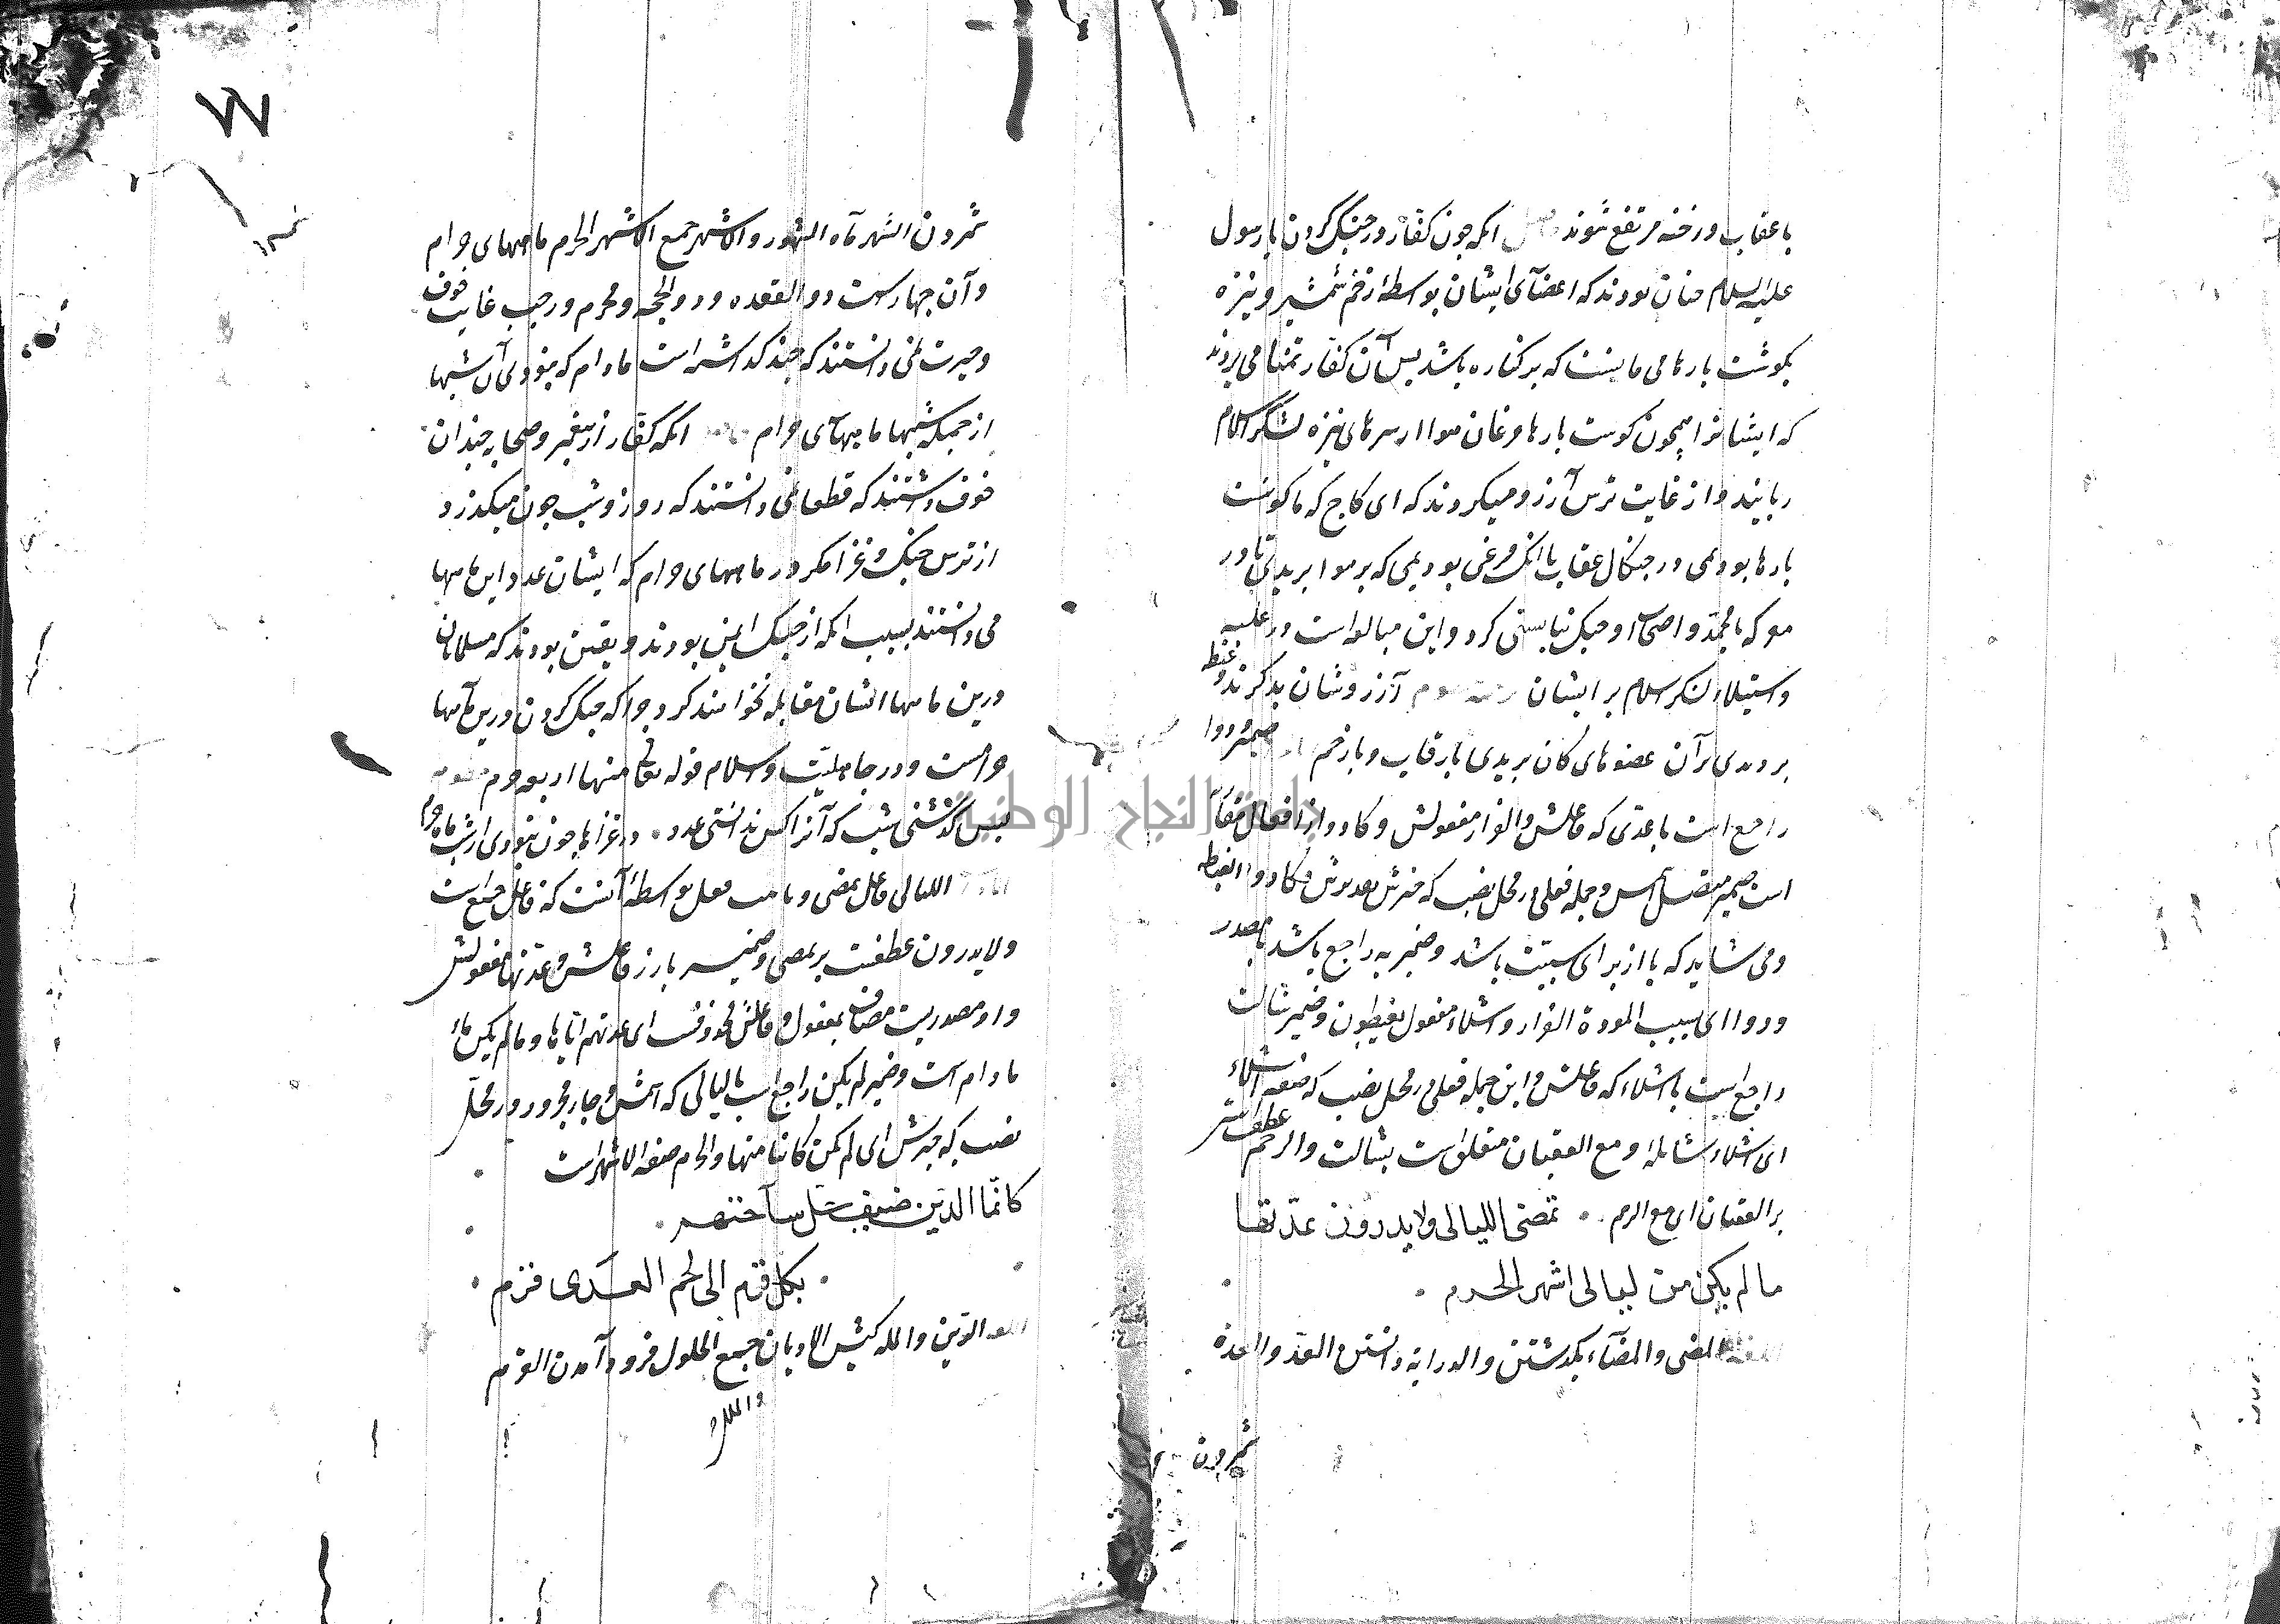 با عقاب و رخمه مرتفع شوند انکه چون کفار در جنگ کردن با رسول
علیه السلام چنان بودند که اعضآی ایشان بواسطهٔ زخم شمشیر و نیزه
بگوشت پارها می مانست که بر کناره باشد پس آن کفار تمنا می بردند
که ایشانرا همچون کوشت پارها مرغان هوا از سرهای نیزه لشکر اسلام
ربایند و از غایت ترس آرزو میکردند که ای کاج که ما کوشت
پارها بودیمی در جنکال عقاب یا انک مرغی بودیمی که بر هوا بریدیمی تا در
معرکه با محمد و اصحاب او جنک نبایستی کرد و این مبالغه است در غلبه
و استیلاء لشکر اسلام بر ایشان آرزوشان بد کردند و غبطه
بردندی بر آن عضوهای کان بریدی با رقاب و با رخم ضمیر ودوا
راجع است باعدی که فاعلش و الفرار مفعولش و کادوا از افعال مقاربه
است ضمیر متصل اسمش و جمله فعلی در محل نصب که خبرش بعد برش و کادوا یغبطه
ومی شاید که با از برای سببیت باشد و ضمیر به راجع باشد بمصدر
ودوا ای بسبب المودة الفرار و اشلاء مفعول یغبطون و ضمیر شالت
راجع است با اشلاء که فاعلش و این جمله فعلی در محل نصب که صفه اشلاء
ای اشلاء شایلة و مع العقبان متعلق است بشالت و الرخم عطف است
بر العقبان ای مع الرخم تمضی اللیالی ولا یدرون عدتها
ما لم یکن من لیالی اشهر الحرم
المضی و المضآء بکدشتن و الدرایه دانستن العد و العدة
ثمرون
٧٧
ثمرون الشهر ماه الشهور و الاشهر جمع الاشهر الحرم ماههای حرام
و آن جهارست ذو القعده و ذو الحجه و محرم و رجب غایت خوف
و حیرت نمی دانستند که چند کدشته است مادام که نبودی آن شبها
از جمله شبها ماههآی حرام انکه کفار از پیغمبر و صحابه چندان
خوف داشتند که قطعا نمی دانستند که روز و شب چون میکذرد
از ترس جنک و غزا مکر در ماههای حرام که ایشان عدد این ماهها
می دانستند بسبب انکه از جنک ایمن بودند و یقین بودند که مسلمانان
درین ماهها با ایشان مقابله نخواهند کرد جرا که جنک کردن درین ماهها
حرامست و در جاهلیت و اسلام قوله تعالی منها اربعه حرم
بس کذشتی شب که آنرا کس ندانستی عدد در غزاها جون نبودی از شب ماه حرام
اللیالی فاعل تمضی و تانیث فعل بواسطهٔ آنست که فاعل جمع است
ولا یدرون عطفست بر تمضی و ضمیر بارز فاعلش و عدتها مفعولش
و او مصدریست مضاف بمفعول و فاعلش محذوفست ای عدتهم ایاها و ما لم یکن ماء
مادام است و ضمیر لم یکن راجع است با لیالی که اسمش و جار مجرور در محل
نصب که خبرش ای لم یکن کائنا منها و الحرم صفه الاشهر است
کانما الدین ضیف حل ساحتهم
بکل قرم الی لحم العدی قرم
الدین و المله کیش الادیان جمع الحلول فرود آمدن القرم